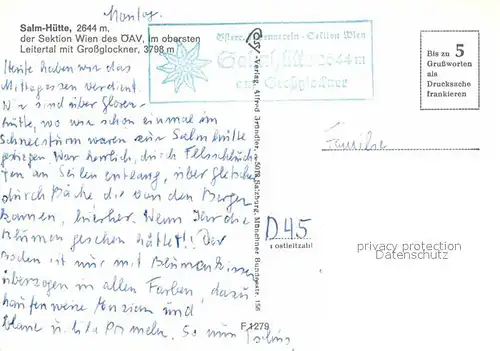 Montag.
Salm-Hütte, 2644 m,
der Sektion Wien des ÖAV, im obersten
Leitertal mit Großglockner, 3798 m
Österr. Alpenverein - Sektion Wien
Salmhütte 2644 m
am Großglockner
Bis zu 5
Grußworten
als
Drucksache
frankieren
Heute haben wir das
Mittagessen verdient.
Wir sind über Glorer-
hütte, wo wir schon einmal im
Schneesturm waren zur Salmhütte
gestiegen. War herrlich, durch Felsschluch-
ten an Seilen entlang, über Gletscher
durch Bäche die von den Bergen
kamen, hierher. Wenn Ihr die
Blumen gesehen hättet! Der
Boden ist nur mit Blumenkissen
überzogen in allen Farben, dazu
haufenweise Enzian und
blaue u. lila Primeln. So nun Tschüss
Verlag Alfred Gründler, 5018 Salzburg, Münchner Bundesstr. 156
Familie
D 45
Postleitzahl
privacy protection
F 1279